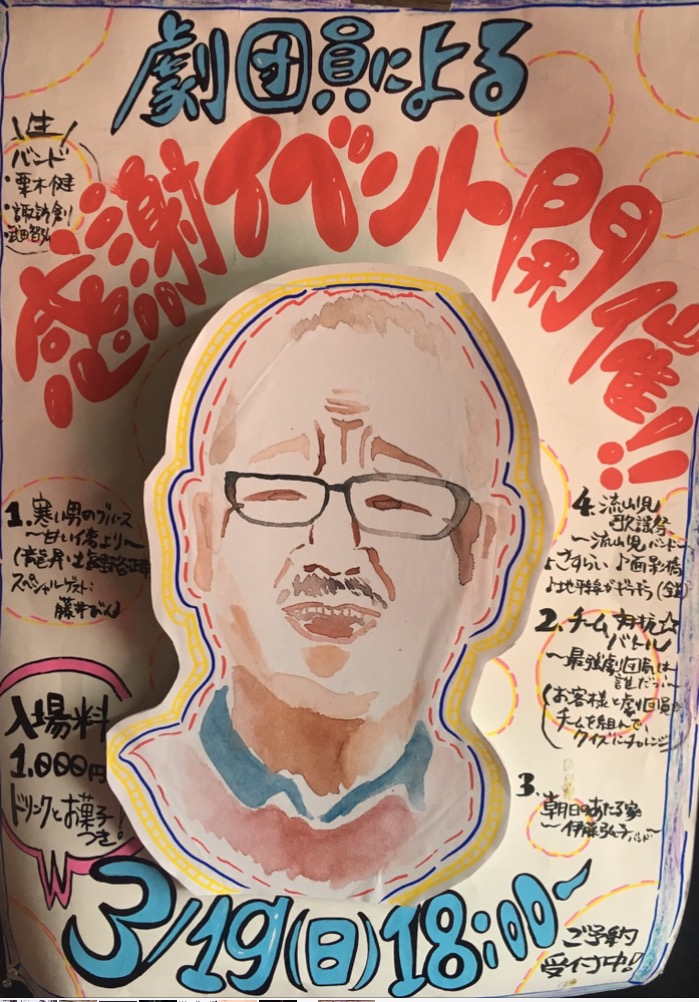 劇団員による
感謝イベント開催!!
生
バンド
・栗木健
・諏訪創
・武田智弘
1. 寒い男のブルース
〜甘い僕より〜
スペシャルゲスト:
藤井びん
入場料
1.000円
ドリンクとお菓子
つき!
4. 流山児
歌謡祭
〜流山児バンド〜
♪さすらい ♪面影橋
♪地平線がギラギラ
2. チーム対抗☆
バトル
〜最強劇団員は
誰だ!〜
(お客様と劇団員が
チームを組んで、
クイズにチャレンジ)
3.
朝日のあたる家
〜伊藤弘子バンド〜
3/19(日)18:00〜
ご予約
受付中!!